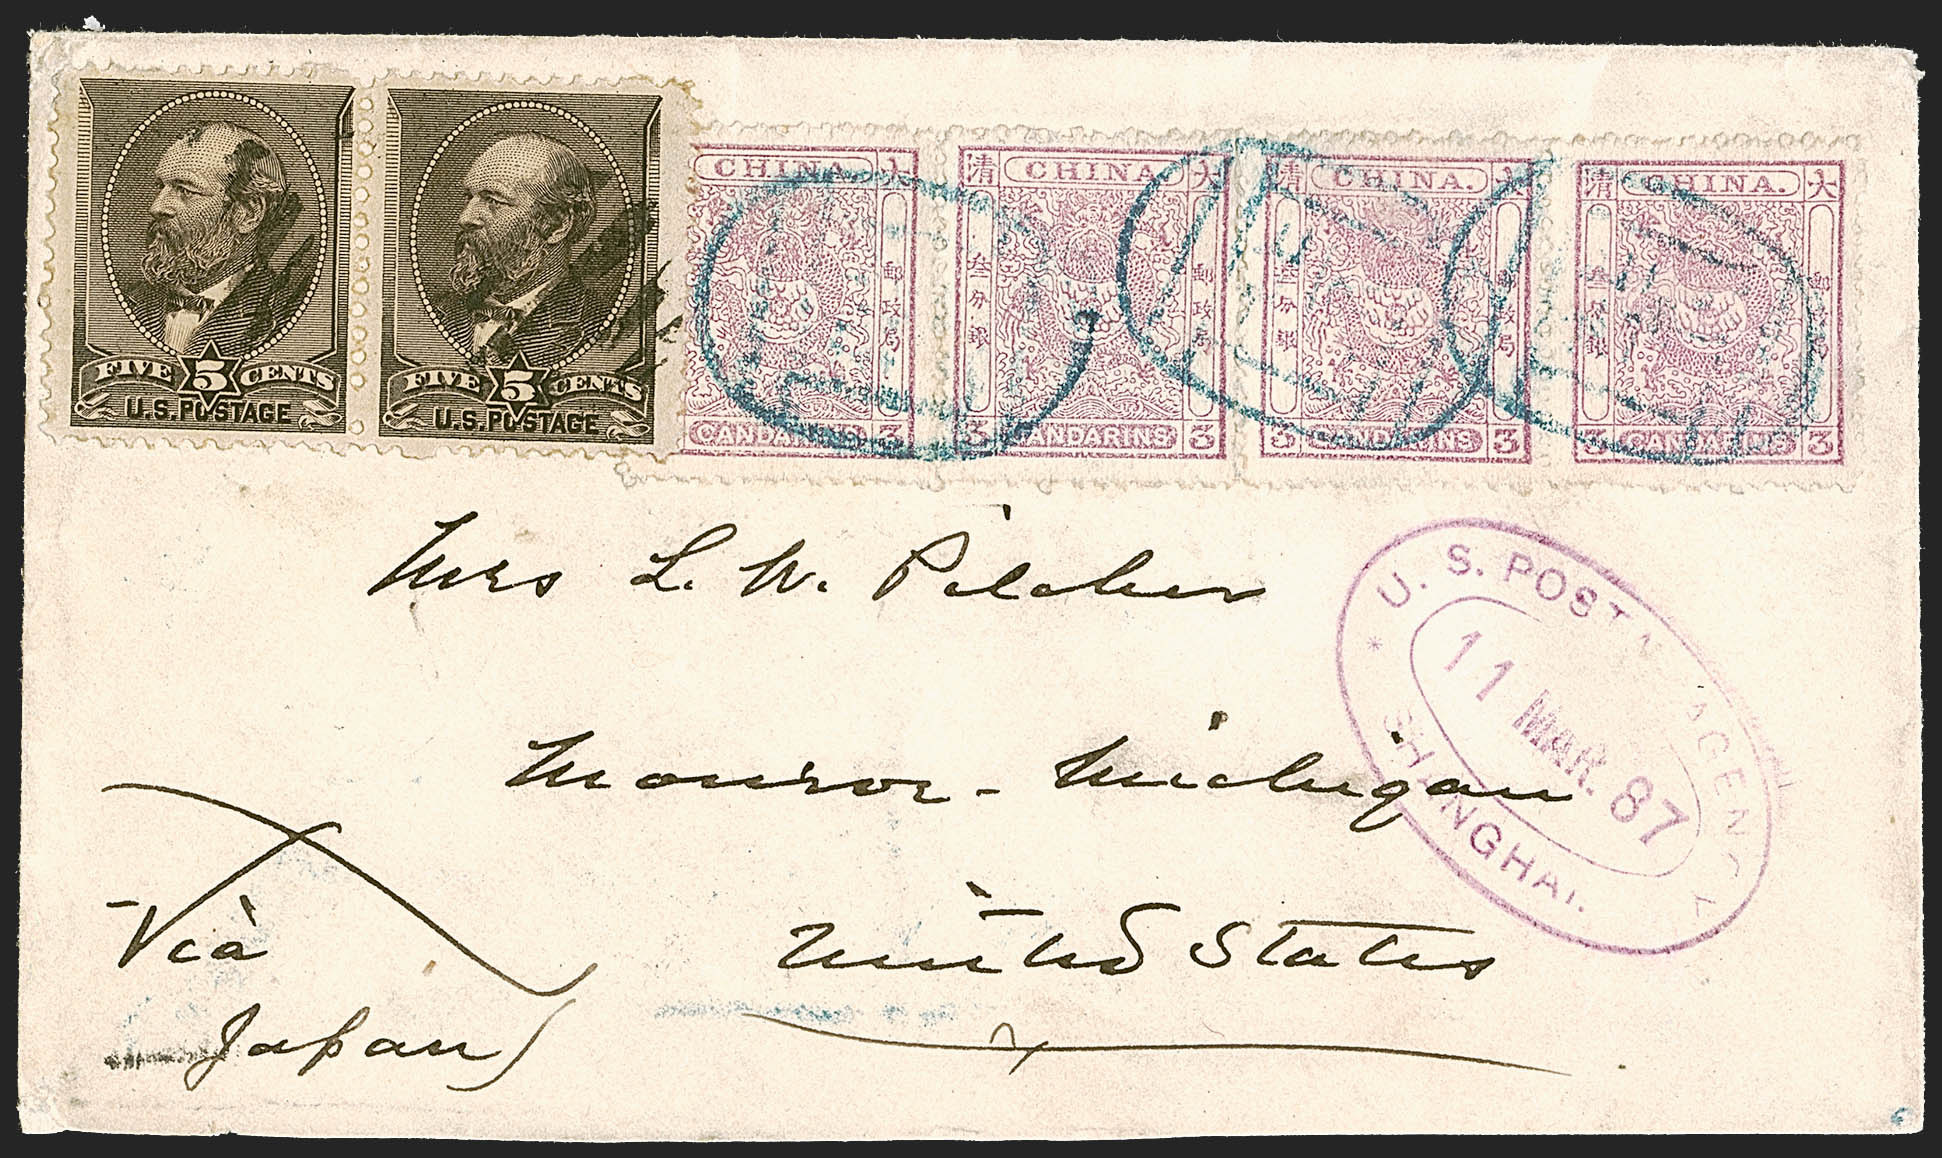 FIVE 5 CENTS
U.S. POSTAGE
FIVE 5 CENTS
U.S. POSTAGE
CHINA. 大
郵政局
CANDARINS 3
清 CHINA. 大
叁分銀
郵政局
3 CANDARINS 3
清 CHINA. 大
叁分銀
郵政局
3 CANDARINS 3
清 CHINA. 大
叁分銀
郵政局
3 CANDARINS 3
Mrs L. W. Pilcher
Monroe - Michigan
United States
Via
Japan
U. S. POSTAL AGENCY
11 MAR. 87
* SHANGHAI.